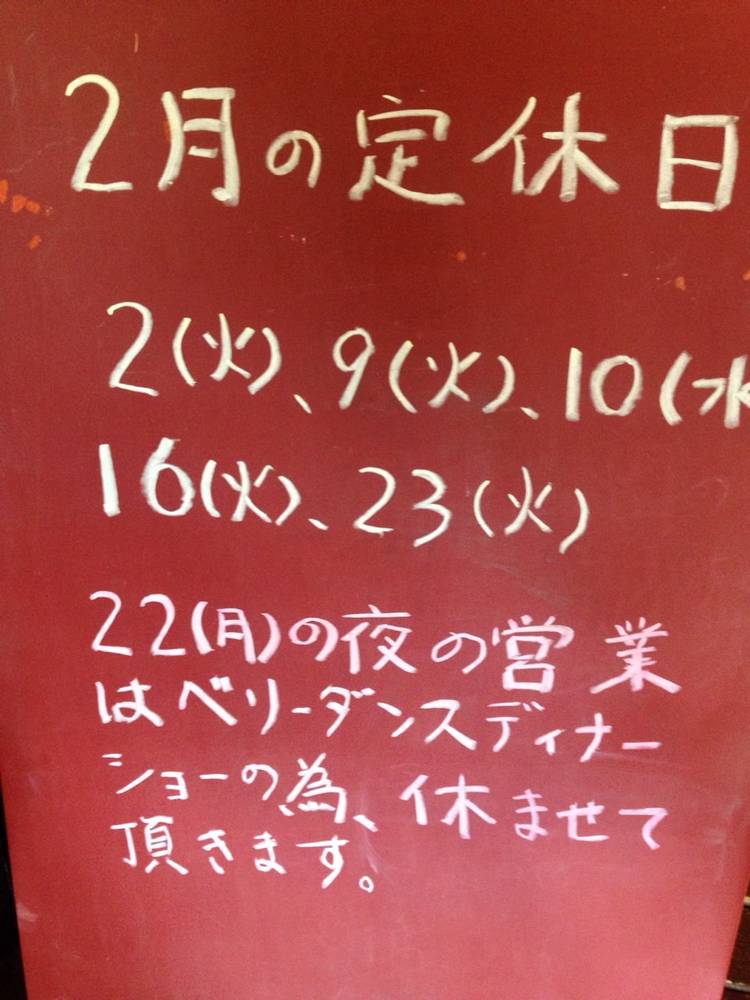 2月の定休日
2(火)、9(火)、10(水
16(火)、23(火)
22(月)の夜の営業
はベリーダンスディナー
ショーの為、休ませて
頂きます。